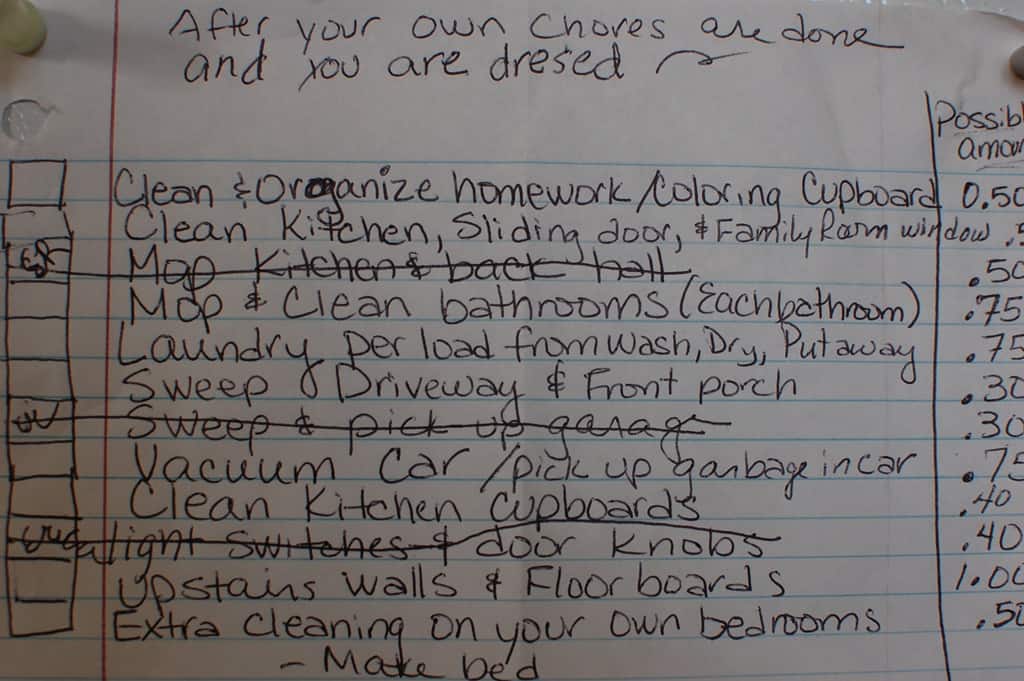 After your own Chores are done
and you are dresed
Possibl
amoun
Clean & Organize homework/Coloring Cupboard 0.50
Clean Kitchen, Sliding door, & Family Room window .5
Mop Kitchen & back hall .50
Mop & Clean bathrooms (Each bathroom) .75
Laundry per load from Wash, Dry, Put away .75
Sweep Driveway & Front porch .30
Sweep & pick up garage .30
Vacuum Car /pick up garbage in car .75
Clean Kitchen Cupboards .40
light switches & door Knobs .40
Upstairs walls & Floor boards 1.00
Extra Cleaning on your own bedrooms .50
- Make bed